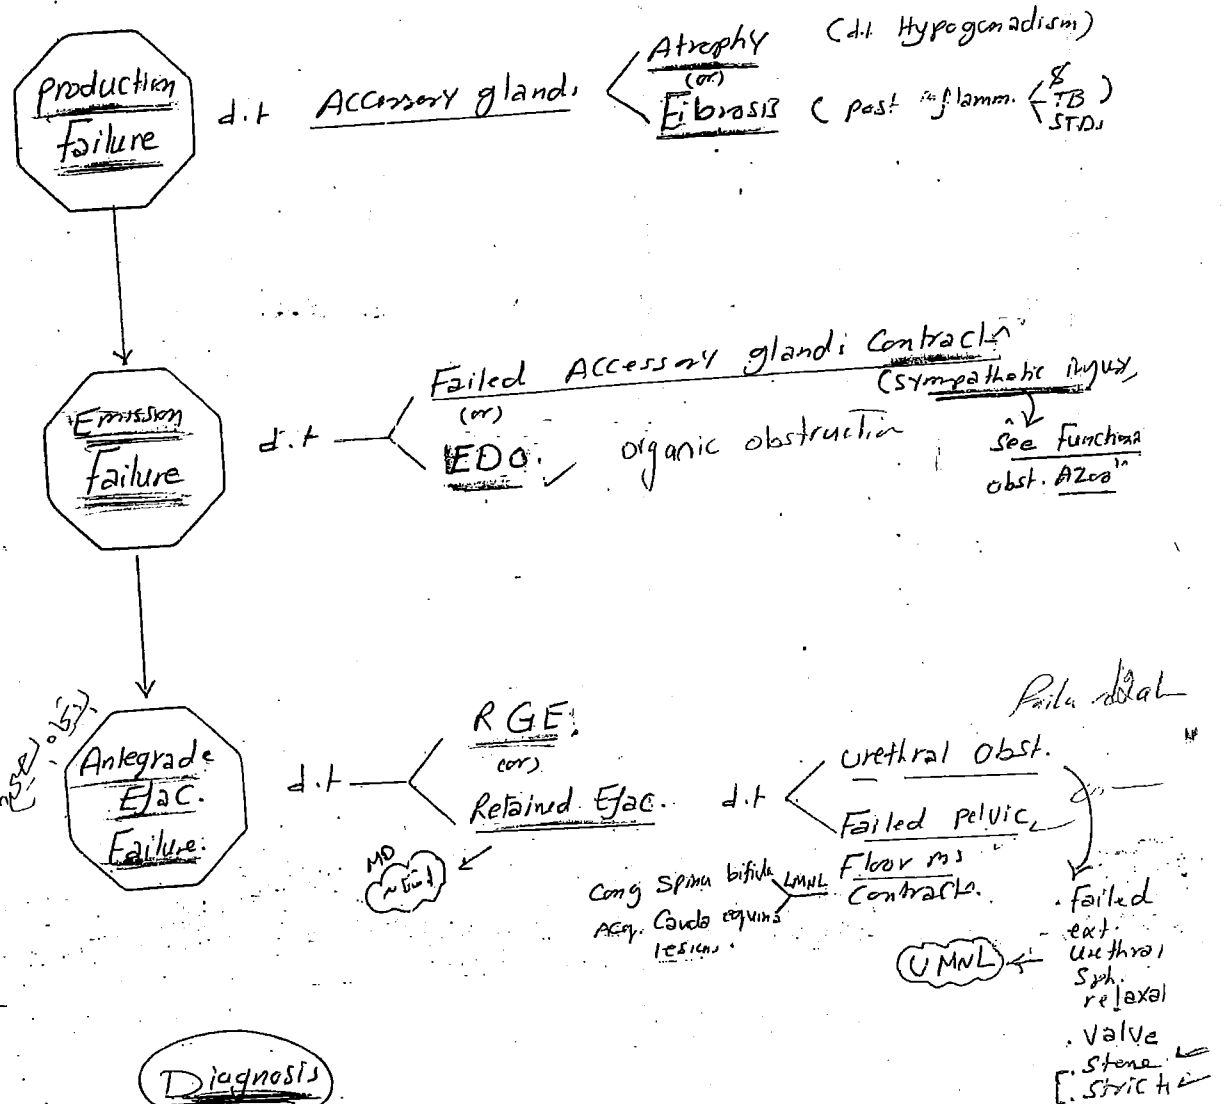 Production
Failure
d.t Accessory glands
Atrophy (d.t Hypogonadism)
(or)
Fibrosis (post inflamm. TB )
STDs
Emission
Failure
d.t
Failed Accessory glands Contractn
(sympathetic injury)
(or)
EDO. organic obstruction
See Functional
obst. Azoo
Antegrade
Ejac.
Failure.
d.t
RGE.
(or)
Retained Ejac. d.t
MD
urethral obst.
Failed pelvic
Floor ms
Contract.
LMNL
Cong spina bifida
Acq. Cauda equina
lesions.
. Failed
ext.
urethral
Sph.
relaxat
UMNL
. valve
. stone
. Strict
Diagnosis